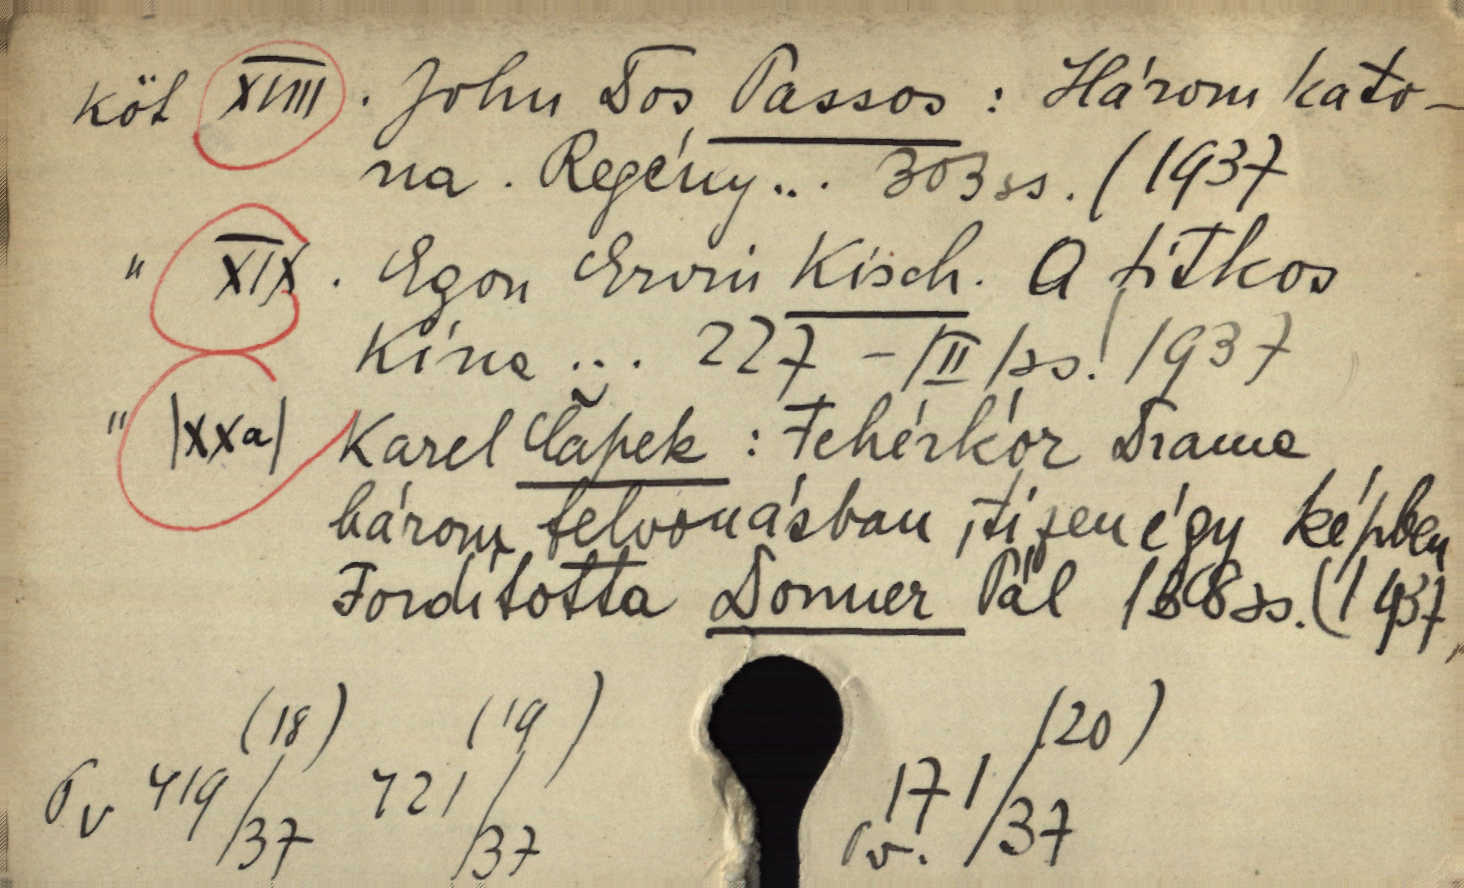 köt XVIII. John Dos Passos: Három kato-
na. Regény... 303 ss. (1937
" XIX. Egon Ervin Kisch. A titkos
Kína ... 227 - |II| ss. (1937
" |XXa| Karel Čapek: Fehérkór Dráma
három felvonásban, tizenégy képben
Fordította Donner Pál 168 ss. (1937,
(18) (19) (20)
Pv 419/37 421/37 171/37
Pv.